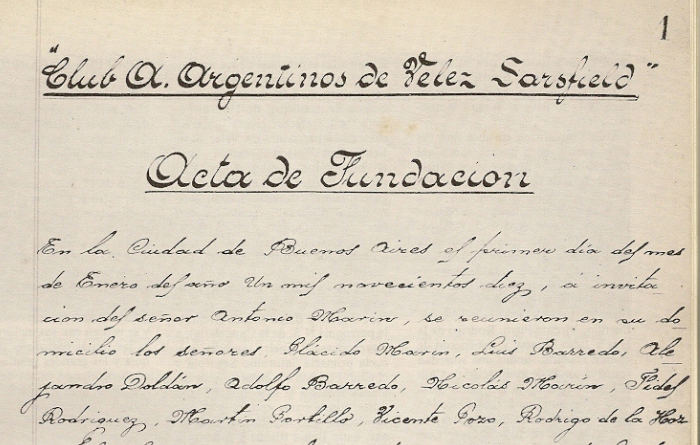 1
"Club A. Argentinos de Velez Sarsfield"
Acta de Fundacion
En la Ciudad de Buenos Aires el primer día del mes
de Enero del año Un mil novecientos diez, á invita
cion del señor Antonio Marin, se reunieron en su do
micilio los señores Plácido Marin, Luis Barredo, Ale
jandro Doldán, Adolfo Barredo, Nicolás Marín, Fidel
Rodriguez, Martin Portillo, Vicente Pozo, Rodrigo de la Hoz